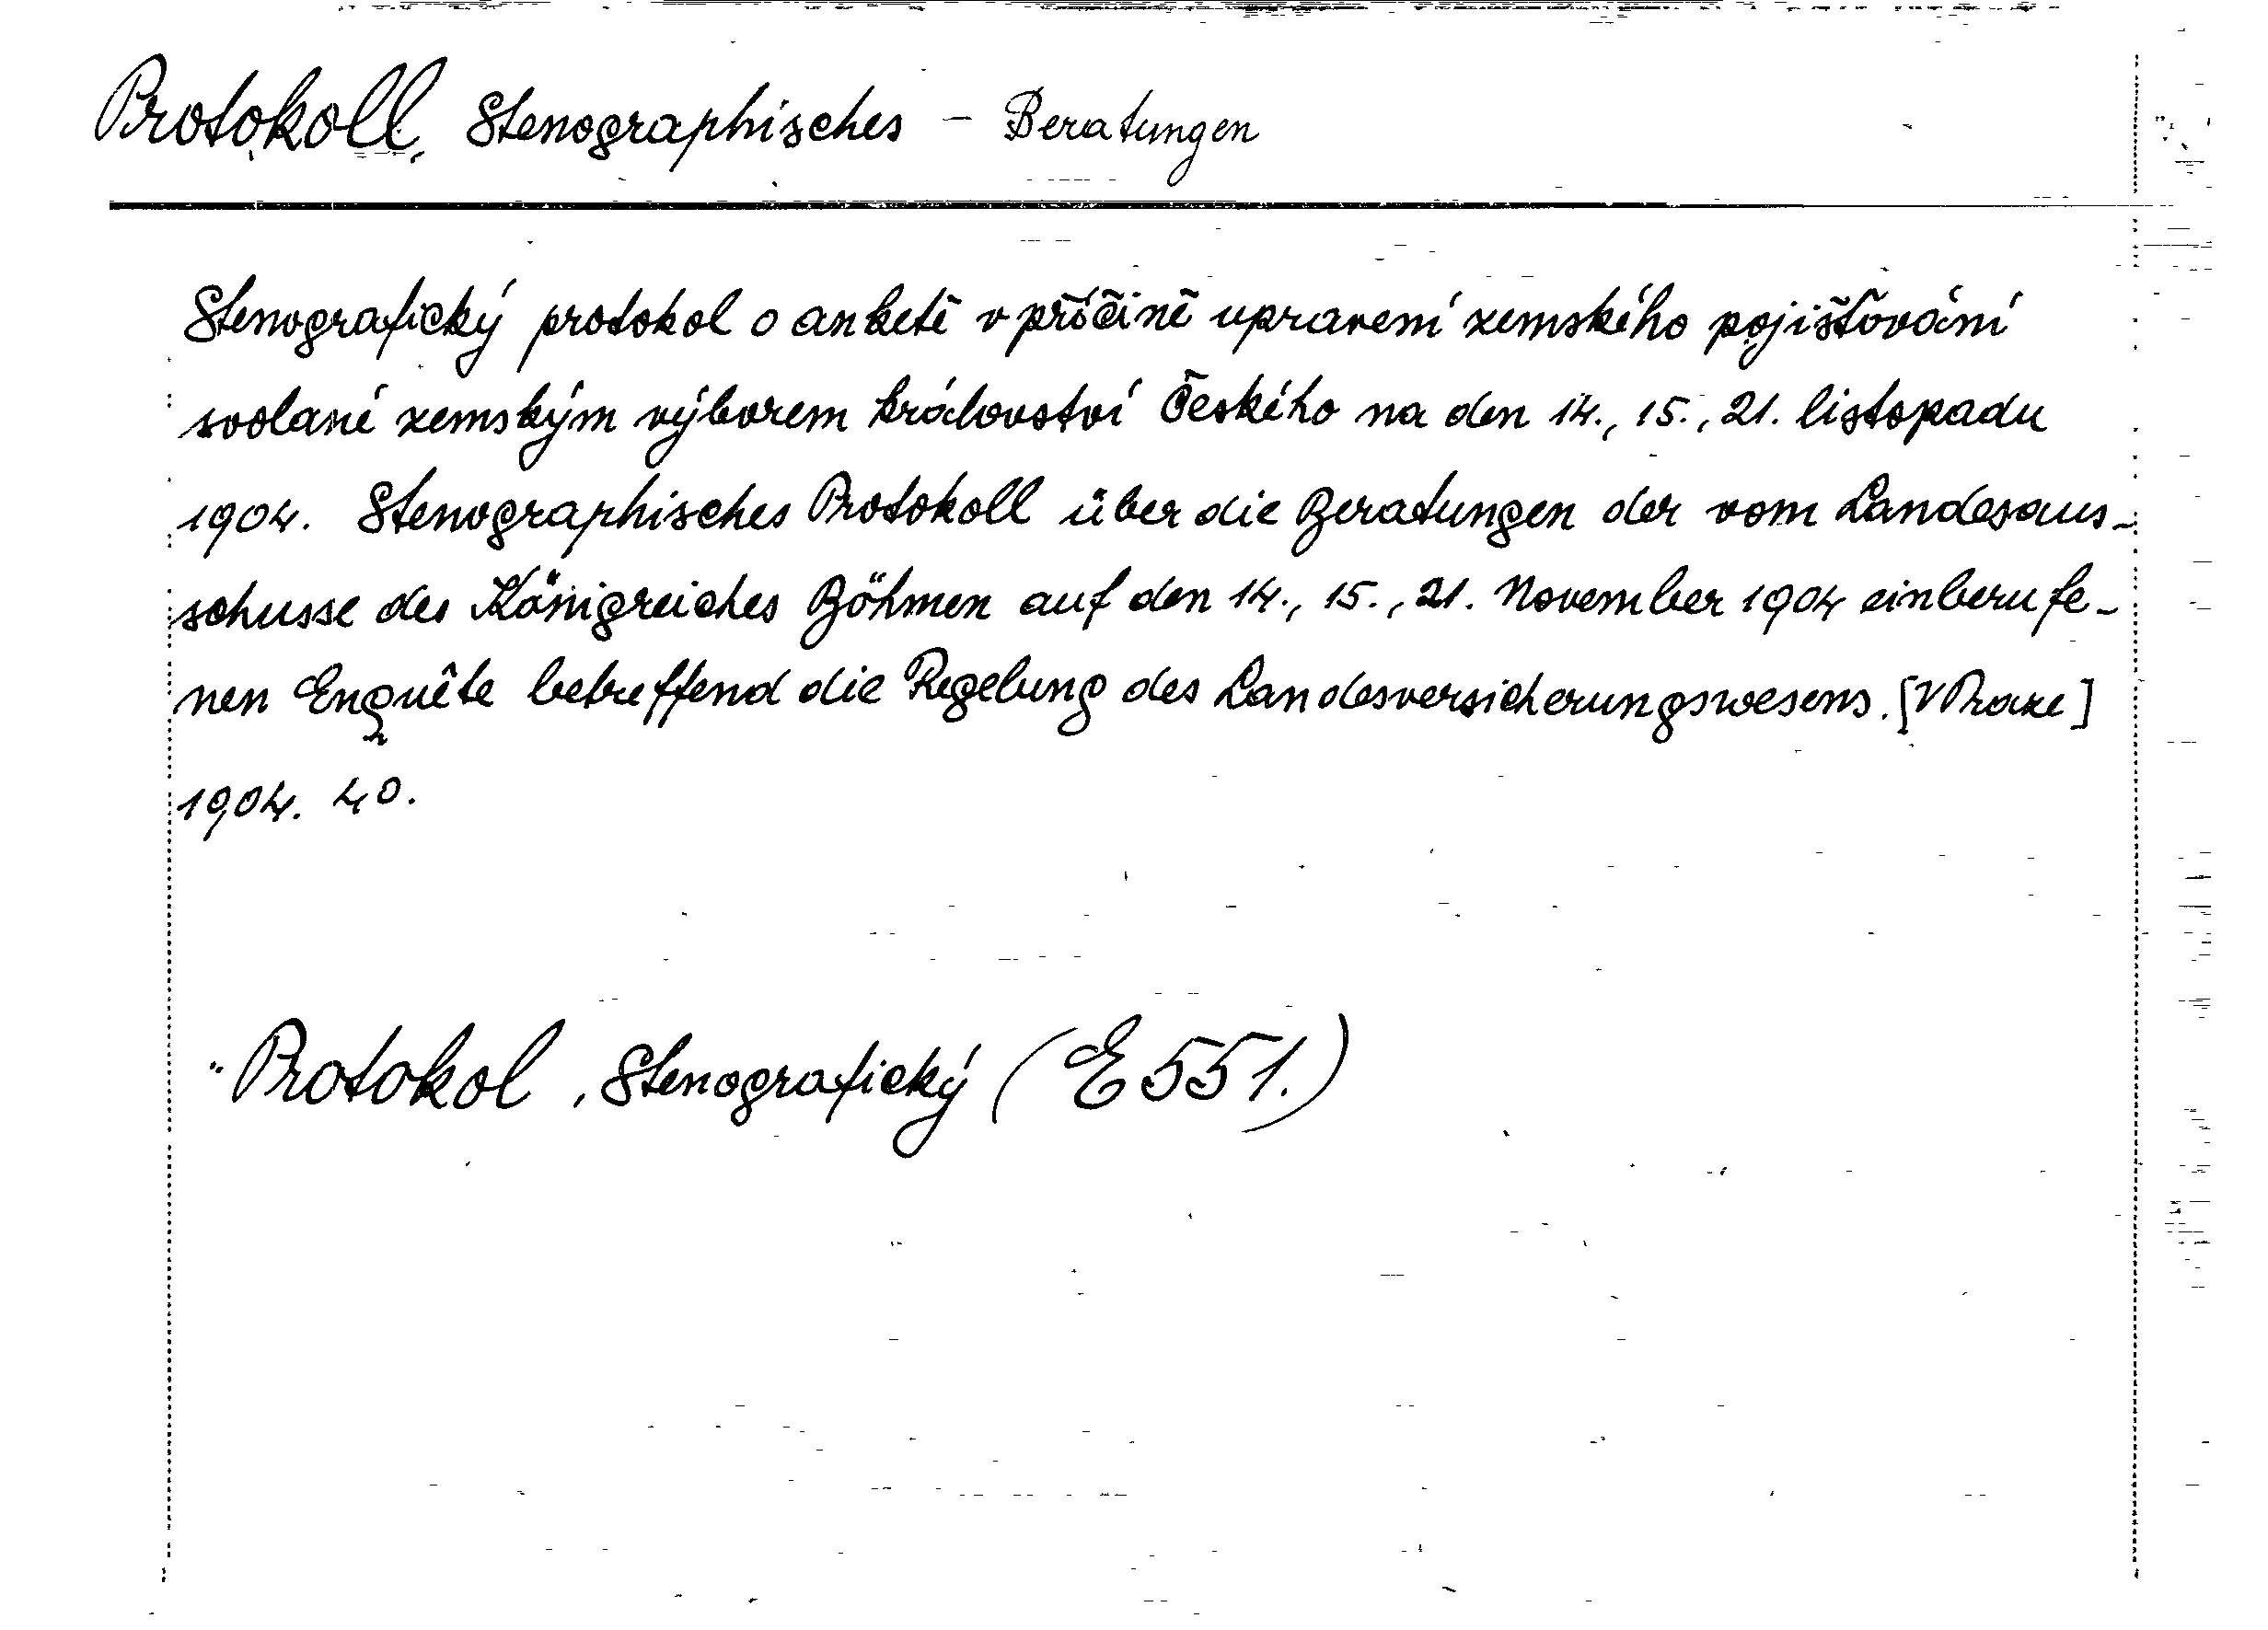 Protokoll, Stenographisches - Beratungen
Stenografický protokol o anketě v příčině upravení zemského pojišťování
svolané zemským výborem království Českého na den 14., 15., 21. listopadu
1904. Stenographisches Protokoll über die Beratungen der vom Landesaus-
schusse des Königreiches Böhmen auf den 14., 15., 21. November 1904 einberufe-
nen Enquête betreffend die Regelung des Landesversicherungswesens. [V Praze]
1904. 40.
"Protokol, Stenografický (E 551.)